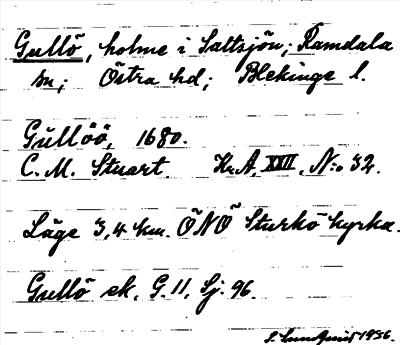 Gullö, holme i Saltsjön; Ramdala
sn; Östra hd; Blekinge l.
Gullöö, 1680.
C. M. Stuart. Kr. A. XXII, N:o 32.
Läge 3,4 km. ÖNÖ Sturkö kyrka.
Gullö ek. G. 11, Sj. 96.
S. Lundquist 1936.